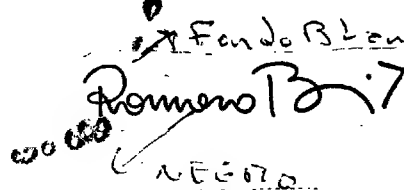 Fondo Blan
Romero Bri
NEGRO